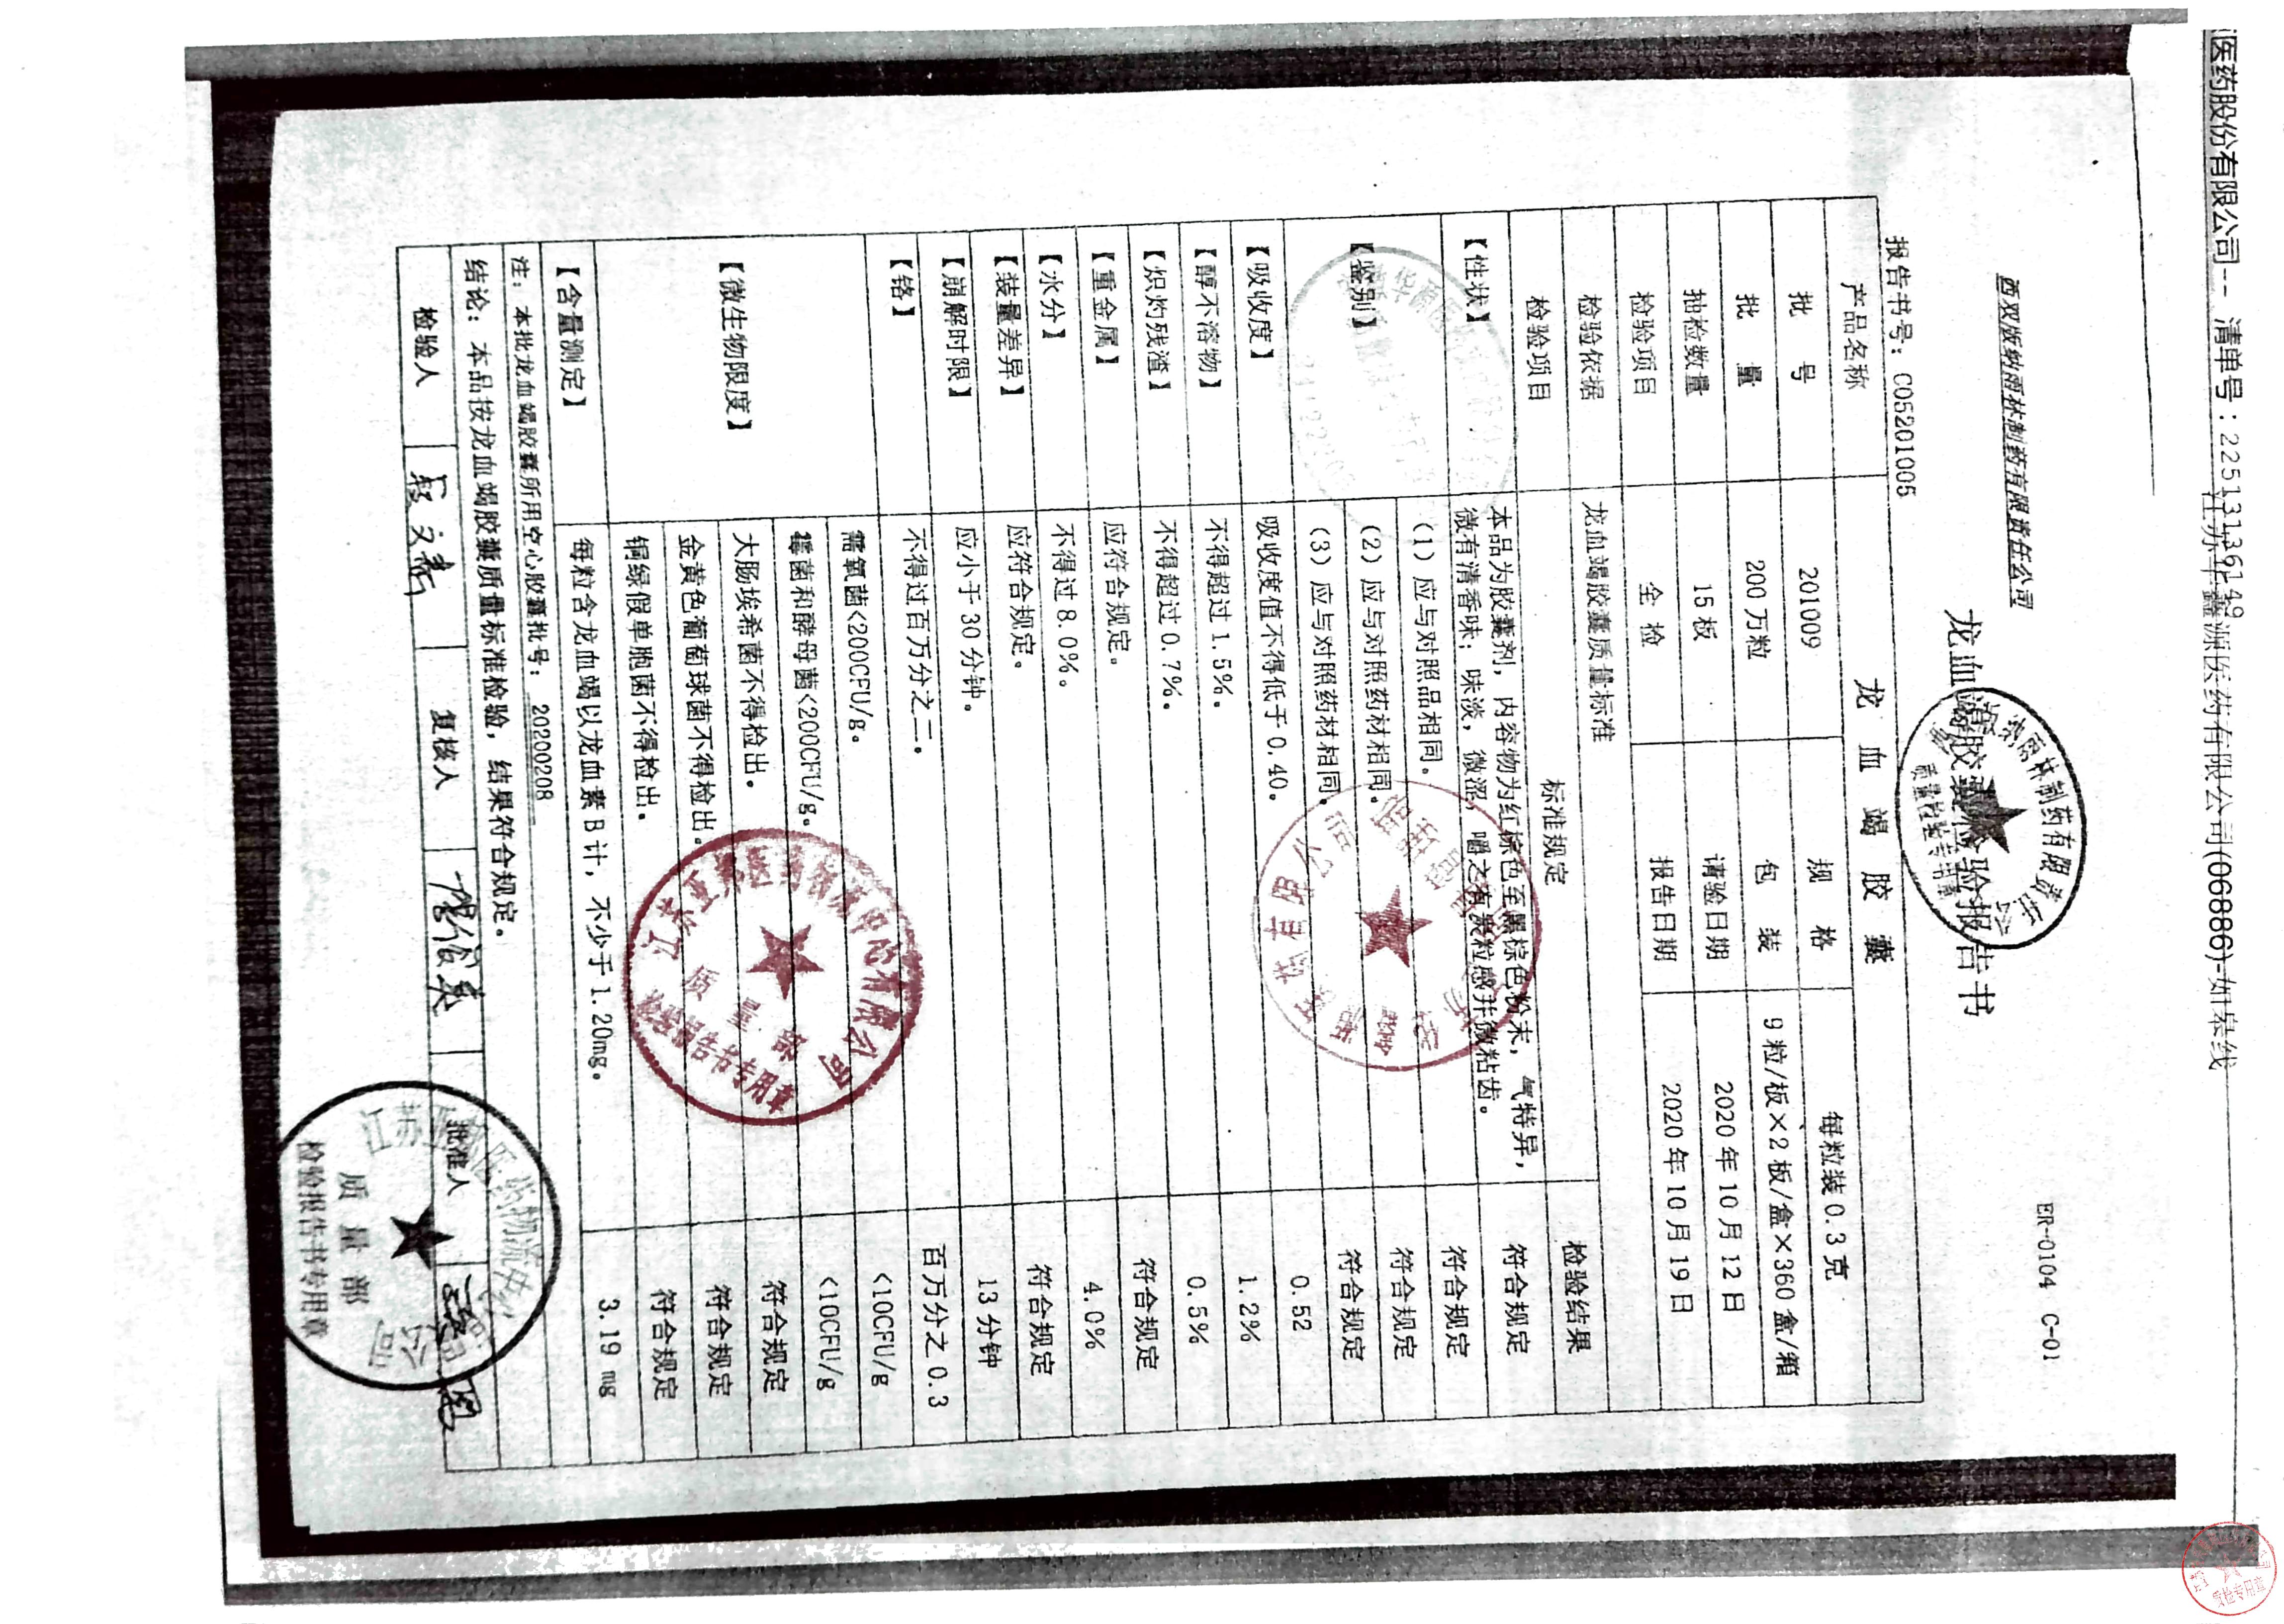 医药股份有限公司-- 清单号:22513136149
江苏华鑫源医药有限公司(06886)-如皋线
西双版纳雨林制药有限责任公司
ER-0104 C-01
龙血竭胶囊检验报告书
报告书号: C05201005
产品名称 龙血竭胶囊
批号 201009 规格 每粒装0.3克
批量 200万粒 包装 9粒/板×2板/盒×360盒/箱
抽检数量 15板 请验日期 2020年10月12日
检验项目 全检 报告日期 2020年10月19日
检验依据 龙血竭胶囊质量标准
检验项目 标准规定 检验结果
【性状】 本品为胶囊剂,内容物为红棕色至黑棕色粉末,气特异,
微有清香味;味淡,微涩,嚼之有炭粒感并微粘齿。 符合规定
【鉴别】 (1)应与对照品相同。 符合规定
(2)应与对照药材相同。 符合规定
(3)应与对照药材相同。 符合规定
【吸收度】 吸收度值不得低于0.40。 0.52
【醇不溶物】 不得超过1.5%。 1.2%
【炽灼残渣】 不得超过0.7%。 0.5%
【重金属】 应符合规定。 符合规定
【水分】 不得过8.0%。 4.0%
【装量差异】 应符合规定。 符合规定
【崩解时限】 应小于30分钟。 13分钟
【铬】 不得过百万分之二。 百万分之0.3
【微生物限度】 需氧菌<200CFU/g。 <10CFU/g
霉菌和酵母菌<200CFU/g。 <10CFU/g
大肠埃希菌不得检出。 符合规定
金黄色葡萄球菌不得检出。 符合规定
铜绿假单胞菌不得检出。 符合规定
【含量测定】 每粒含龙血竭以龙血素B计,不少于1.20mg。 3.19 mg
注:本批龙血竭胶囊所用空心胶囊批号:20200208
结论:本品按龙血竭胶囊质量标准检验,结果符合规定。
检验人 复核人 批准人
质量检验专用章
江苏亚邦医药物流中心有限公司
质量部
检验报告书专用章
江苏亚邦医药物流中心有限公司
质量部
检验报告书专用章
质检专用章